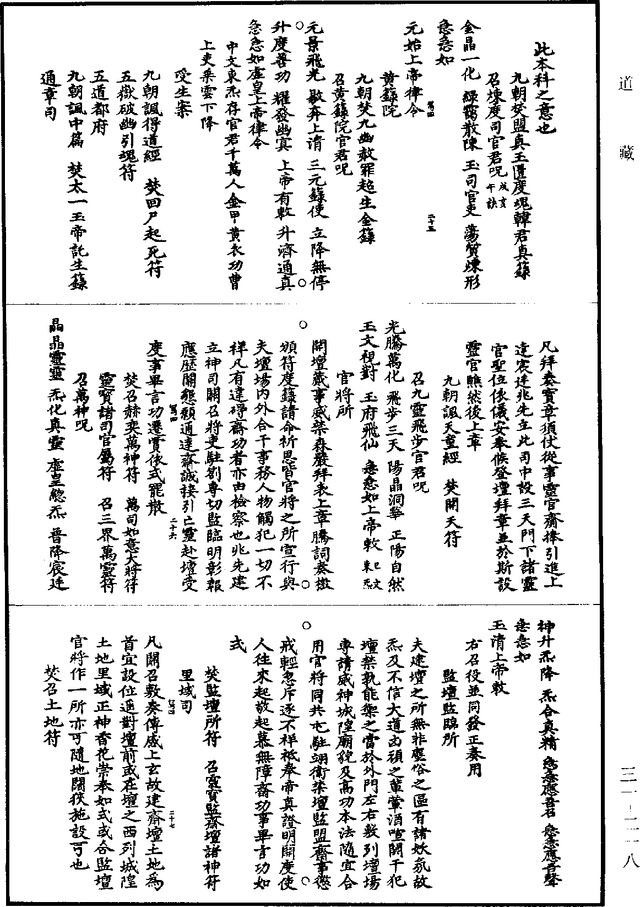 道藏
此本科之意也
九朝焚盟真玉匱度魂韓君真籙
召煉度司官君呪
金晶一化 綠靄散陳 玉司官吏 蕩質煉形
急急如
元始上帝律令
黃籙院
九朝焚九幽赦罪超生金籙
召黃籙院官君呪
元景飛光 敬弃上清 三元錄使 立降無停
升度善功 耀發幽冥 上帝有敕 升濟通真
急急如虛皇上帝律令
中文東炁存官君千萬人金甲黃衣功曹
上吏乘雲下降
受生案
九朝諷得道經 焚回尸起死符
五嶽破幽引魂符
五道都府
九朝諷中篇 焚太一玉帝託生籙
通章司
凡拜奏實章須伏從事靈官齋捧引進上
達宸廷兆先立此司中設三天門下諸靈
官聖位依儀安奉候登壇拜章並於斯設
靈官醮然後上章
九朝諷天童經 焚開天符
召九靈飛步官君呪
光騰萬化 飛步三天 陽晶洞華 正陽自然
玉文視對 玉府飛仙 急急如上帝敕
官將所
開壇藏事威禁森嚴拜表上章騰詞奏檄
頒符度籙請命祈恩皆官將之所宣行與
夫壇場內外合干事務人物觸犯一切不
祥凡有違碍齋功者亦由檢察也兆先建
立神司關召將吏駐劄專切監臨明彰報
應歷關懇願通達齋誠接引亡靈赴壇受
度事畢言功遷賞依式罷散
焚召赫奕萬神符 萬司如意大將符
靈寶諸司官屬符 召三界萬靈符
召萬神呪
晶晶靈靈 炁化真靈 虛皇總炁 普降宸廷
二十六
神升炁降 炁合真精 急急應吾召 急急應吾聲
急急如
玉清上帝敕
右召役並同發正奏用
監壇監臨所
夫建壇之所無非塵俗之區有諸妖氛故
炁及不信大道凶頑之輩葷酒喧閧干犯
壇禁孰能禦之當於外門左右敷列壇場
專請威神城隍廟貌及高功本法隨宜合
用官將同共屯駐翊衛禁壇監盟齋事懲
戒輕忽斥逐不祥祗奉帝真證明開度使
人往來起敬起慕無障齋功事畢言功如
式
焚監壇所符 召靈寶監齋壇諸神符
里域司
二十七
凡關召敷奏傳感上玄故建齋壇土地為
首宜設位通對壇前或在壇之西列城隍
土地里域正神香花崇奉如式或合監壇
官將作一所亦可隨地闊狹施設可也
焚召土地符
三一—二一八